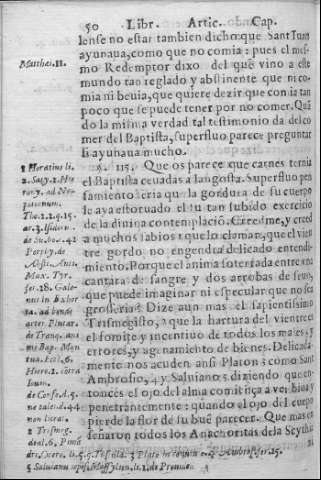 50 Libr. Artic. Cap.
lense no estar tambien dicho: que Sant Iuan
ayunaua, como que no comia: pues el mes-
Matthæi. 11.
mo Redemptor dixo del que vino a este
mundo tan reglado y abstinente que ni co-
mia ni beuia, que quiere dezir que comia tan
poco que se puede tener por no comer. Quã
do la misma verdad tal testimonio da del co
mer del Baptista, superfluo parece preguntar
si ayunaua mucho.
§. 115. Que os parece que carnes ternia
el Baptista ceuadas a langosta. Superfluo pen
samiento seria que la gordura de su cuerpo
le aya estoruado el tan subido exercicio
de la diuina contemplaciõ. Creedme, y creed
a muchos sabios que lo claman, que el vien
tre gordo no engendra delicado entendi-
miento. Porque el anima soterrada entre vna
cantara de sangre y dos arrobas de seuo,
que puede imaginar ni especular que no sea
groseria? Dize aun mas el sapientissimo
Trismegisto, 2 que la hartura del vientre es
el fomite y incentiuo de todos los males, y
errores, y agenamiento de bienes. Delicada-
mente nos acuden ansi Platon 3 como Sant
Ambrosio, 4 y Saluiano 5 diziendo que en-
tonces el ojo del alma comiẽça a ver biua y
penetrantemente: quando el ojo del cuerpo
pierde la flor de su buẽ parecer. Que mas en
señaron todos los Anachoritas dela Scythia
1 Horatius li.
2. Saty. 2. He
ro. y. ad Nep
tho. 2. 2. q. 15.
ar. 3. Isidoru.
Porphy. de
Absti.
Max. Tyr.
ser. 28. Gale-
nus
Plutar.
de Tranq.
Hiero. 2. contra
Iouin.
2 Trismeg.
5 Saluianus